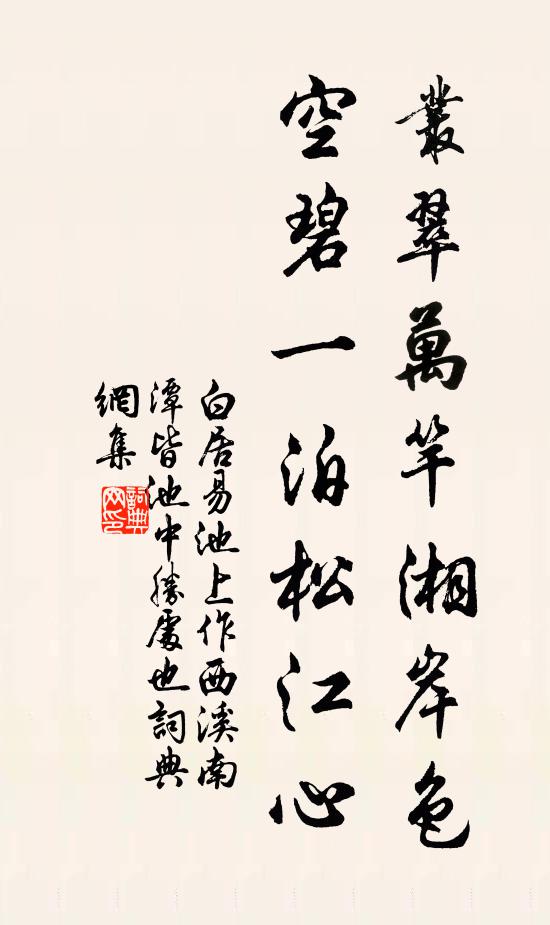 叢翠萬竿湘岸色
空碧一泊松江心
白居易池上作西溪南
潭皆池中勝處也詞典
網集
詞典網印